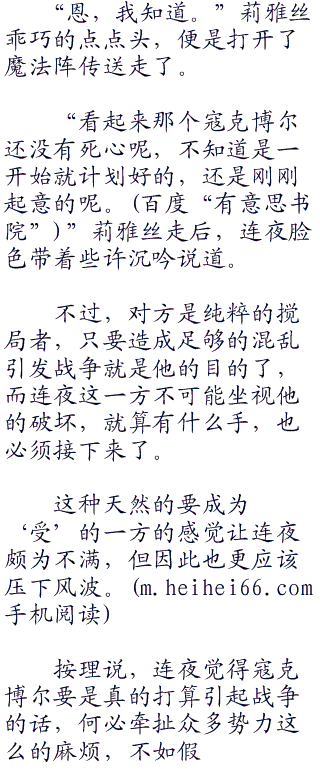 “恩，我知道。”莉雅丝
乖巧的点点头，便是打开了
魔法阵传送走了。
“看起来那个寇克博尔
还没有死心呢，不知道是一
开始就计划好的，还是刚刚
起意的呢。(百度“有意思书
院”)”莉雅丝走后，连夜脸
色带着些许沉吟说道。
不过，对方是纯粹的搅
局者，只要造成足够的混乱
引发战争就是他的目的了，
而连夜这一方不可能坐视他
的破坏，就算有什么手，也
必须接下来了。
这种天然的要成为
‘受’的一方的感觉让连夜
颇为不满，但因此也更应该
压下风波。(m.heihei66.com
手机阅读)
按理说，连夜觉得寇克
博尔要是真的打算引起战争
的话，何必牵扯众多势力这
么的麻烦，不如假